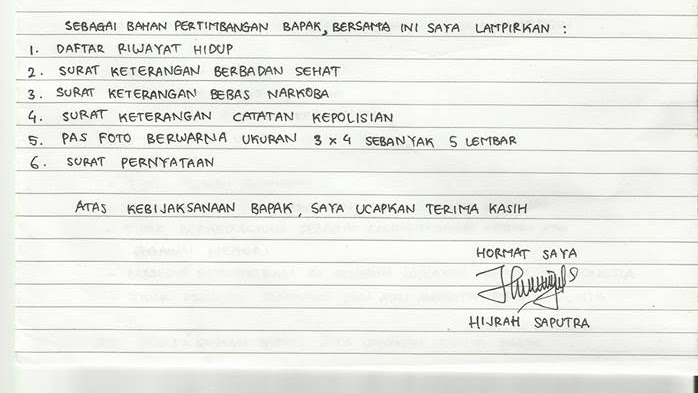 SEBAGAI BAHAN PERTIMBANGAN BAPAK, BERSAMA INI SAYA LAMPIRKAN :
1. DAFTAR RIWAYAT HIDUP
2. SURAT KETERANGAN BERBADAN SEHAT
3. SURAT KETERANGAN BEBAS NARKOBA
4. SURAT KETERANGAN CATATAN KEPOLISIAN
5. PAS FOTO BERWARNA UKURAN 3 x 4 SEBANYAK 5 LEMBAR
6. SURAT PERNYATAAN
ATAS KEBIJAKSANAAN BAPAK, SAYA UCAPKAN TERIMA KASIH
HORMAT SAYA
HIJRAH SAPUTRA